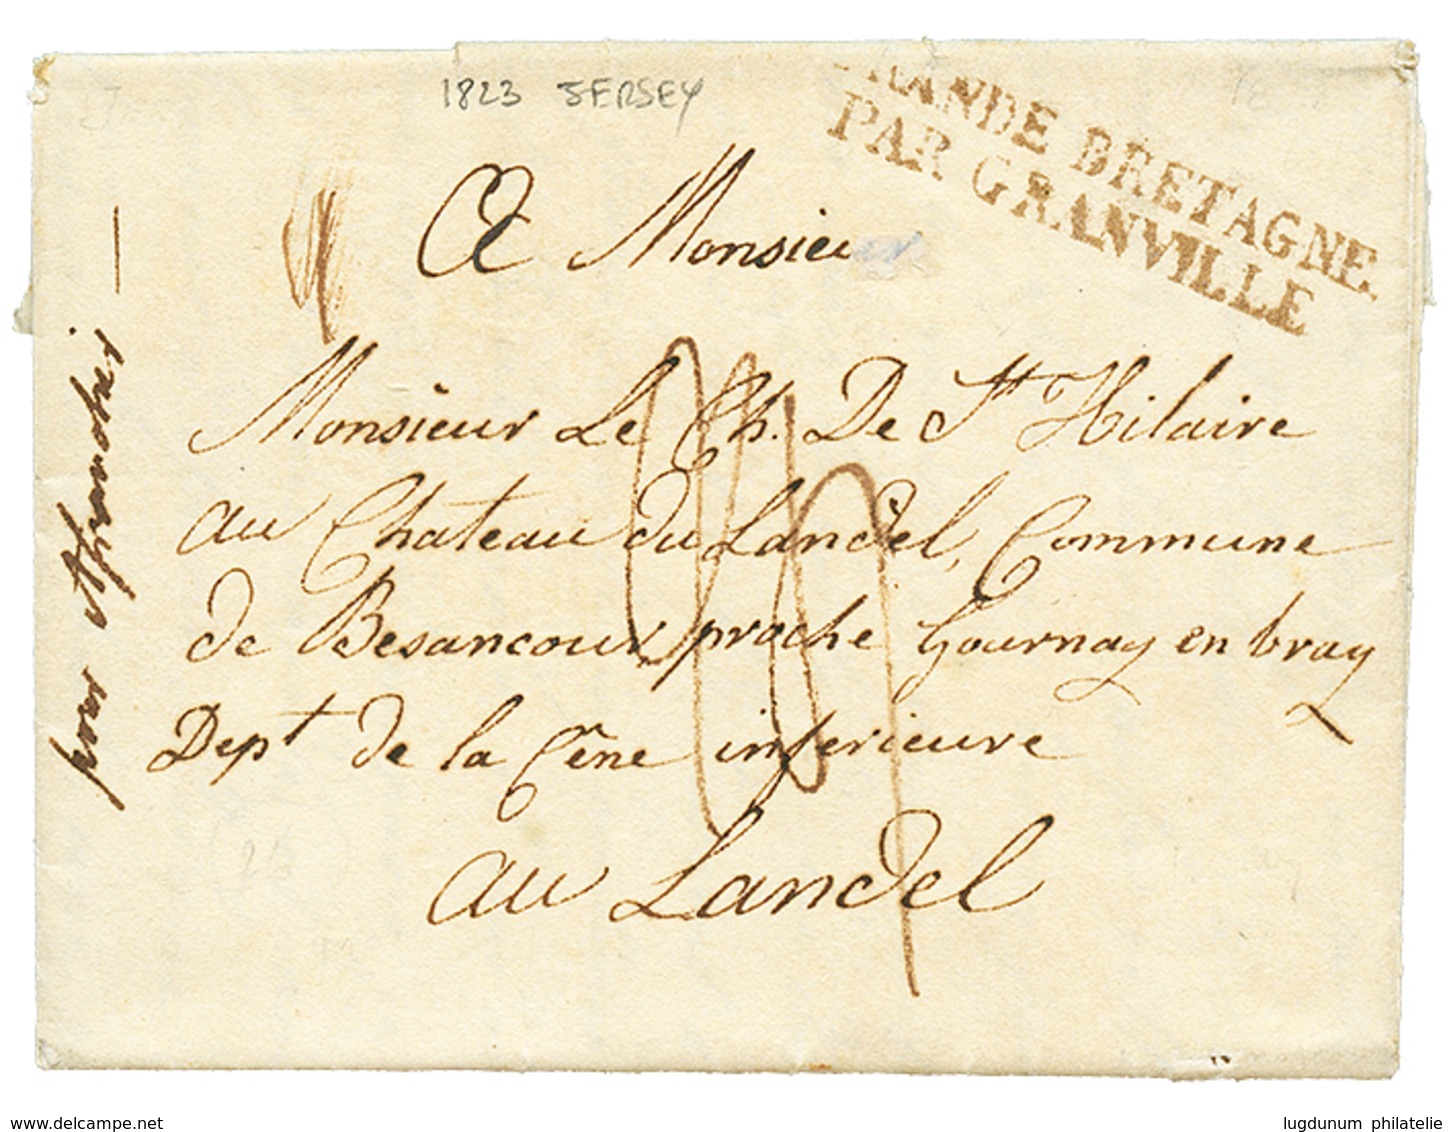 1823 JERSEY
RANDE BRETAGNE
PAR GRANVILLE
A Monsieur
Monsieur Le Ch. De St Hilaire
au Chateau du Landel, Commune
de Besancour proche Gournay en bray
Dept de la Cêne inferieure
au Landel
pour
26
www.delcampe.net
lugdunum philatelie